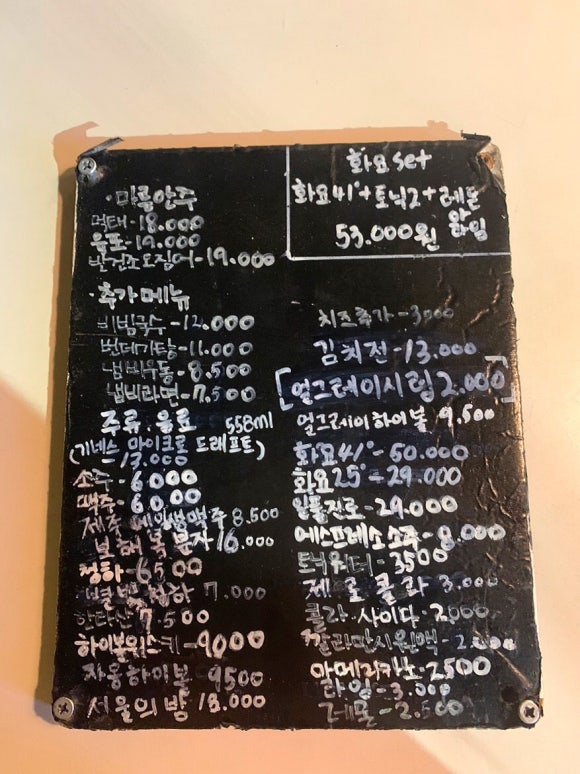 화요 set
화요41°+토닉2+레몬
라임
53.000원
·마른안주
먹태-18.000
육포-19.000
반건조오징어-19.000
·추가메뉴
비빔국수-12.000
번데기탕-11.000
냄비우동-8.500
냄비라면-7.500
주류.음료 558ml
(기네스 마이크로 드래프트)
13.000
소주-6000
맥주-6000
제주 생맥주 8.500
복분자 16.000
청하-6500
별빛청하 7.000
한라산 7.500
하이볼위스키-9000
자몽하이볼 9500
서울의밤 18.000
치즈추가-3000
김치전-13.000
[얼그레이시럽 2.000]
얼그레이하이볼 9.500
화요41°-50.000
화요25°-29.000
일품진로-29.000
에스프레소소주-8.000
토닉워터-3500
제로콜라 3.000
콜라.사이다-2000
깔라만시원액-2.000
아메리카노-2500
라임-3.000
레몬-2.500